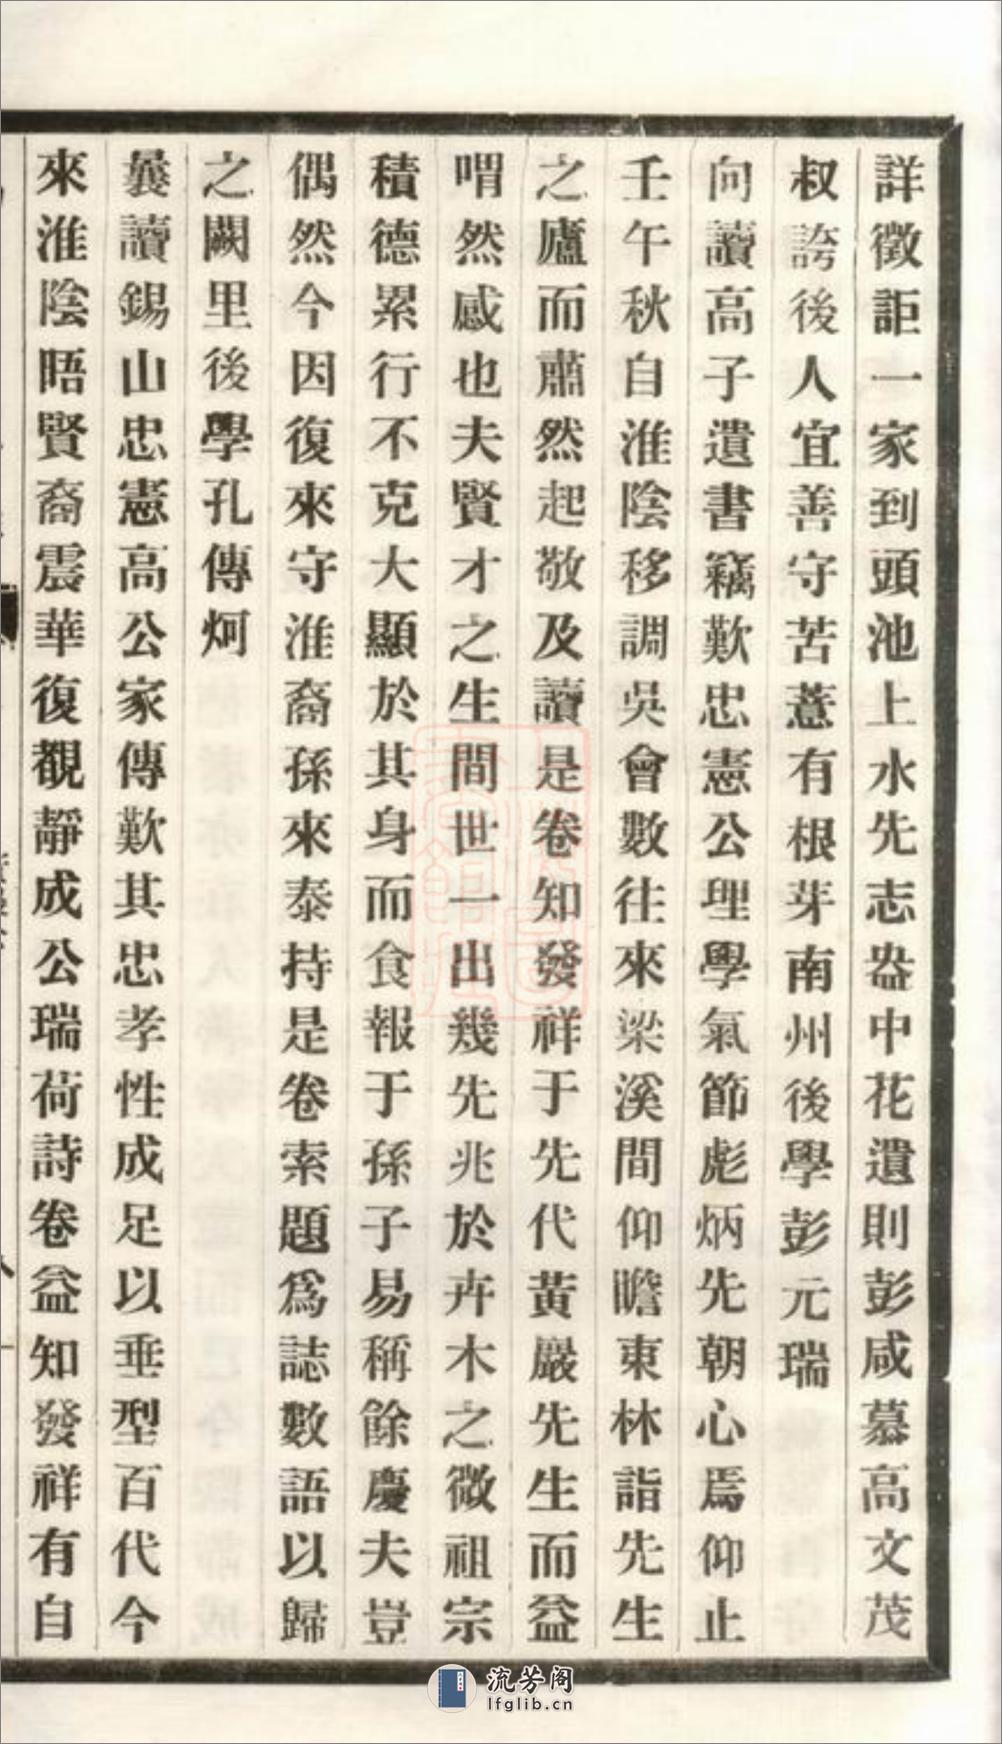 詳徵詎一家到頭池上水先志盎中花遺則彭咸慕高文茂
叔誇後人宜善守苦薏有根芽南州後學彭元瑞
向讀高子遺書竊歎忠憲公理學氣節彪炳先朝心焉仰止
壬午秋自淮陰移調吳會數往來梁溪間仰瞻東林詣先生
之廬而肅然起敬及讀是卷知發祥于先代黃巖先生而益
喟然感也夫賢才之生間世一出幾先兆於卉木之微祖宗
積德累行不克大顯於其身而食報于孫子易稱餘慶夫豈
偶然今因復來守淮裔孫來泰持是卷索題為誌數語以歸
之闕里後學孔傳炣
曩讀錫山忠憲高公家傳歎其忠孝性成足以垂型百代今
來淮陰晤賢裔震華復覩靜成公瑞荷詩卷益知發祥有自
流芳阁
lfglib.cn